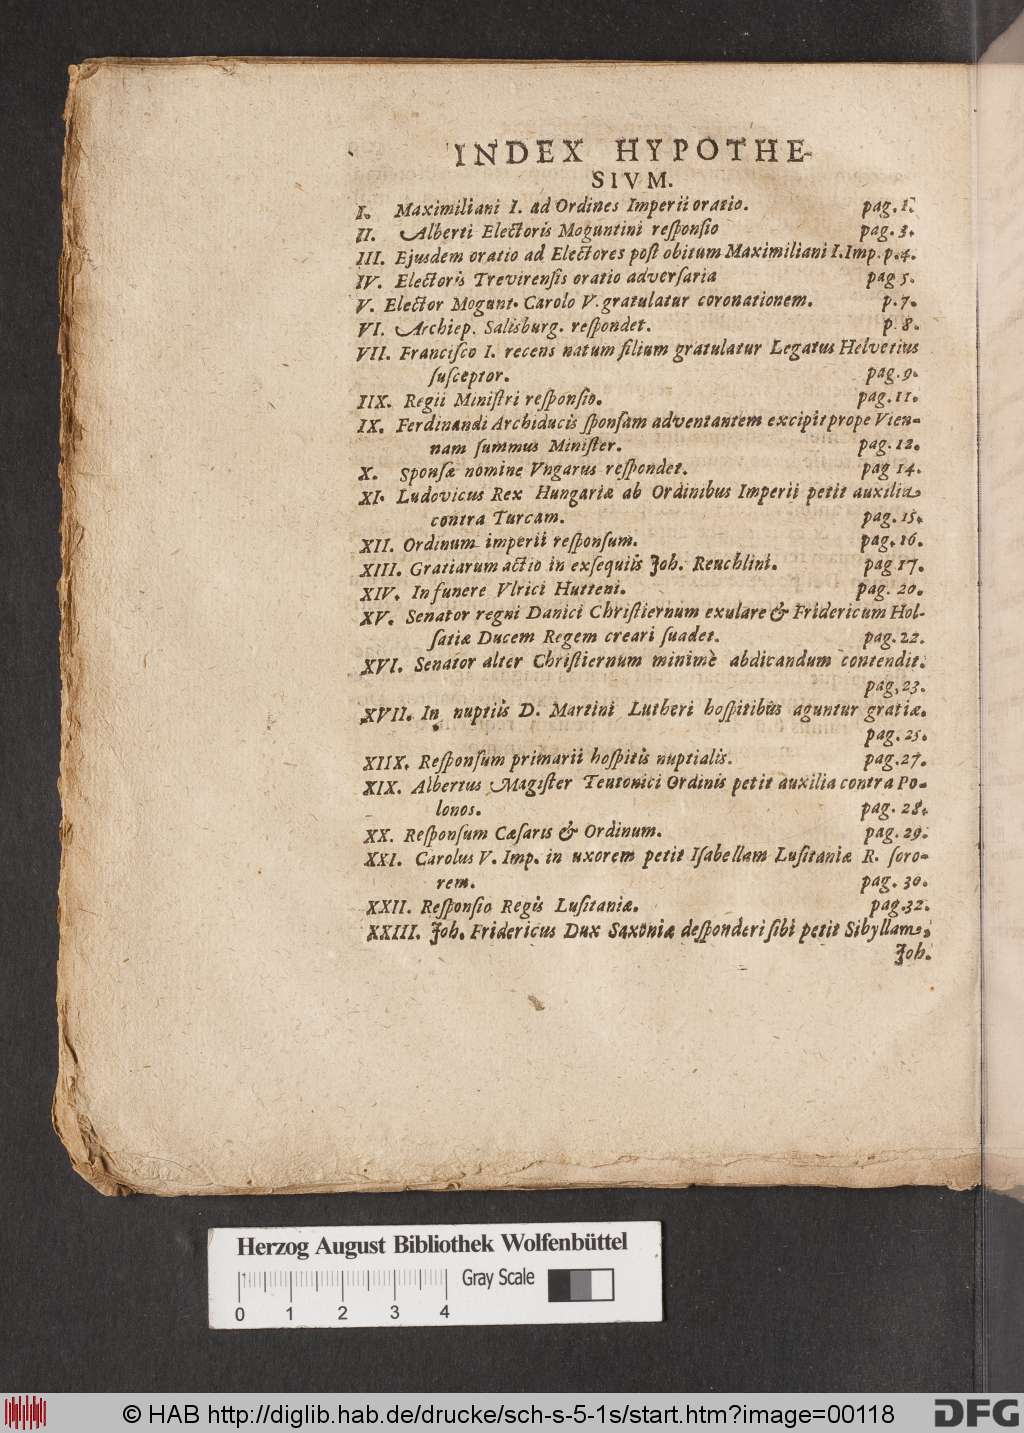 INDEX HYPOTHE-
SIVM.
I. Maximiliani I. ad Ordines Imperii oratio. pag. 1.
II. Alberti Electoris Moguntini responsio pag. 3.
III. Ejusdem oratio ad Electores post obitum Maximiliani I. Imp. p. 4.
IV. Electoris Trevirensis oratio adversaria pag 5.
V. Elector Mogunt. Carolo V. gratulatur coronationem. p. 7.
VI. Archiep. Salisburg. respondet. p. 8.
VII. Francisco I. recens natum filium gratulatur Legatus Helvetius
susceptor. pag. 9.
IIX. Regii Ministri responsio. pag. 11.
IX. Ferdinandi Archiducis sponsam adventantem excipit prope Vien-
nam summus Minister. pag. 12.
X. Sponsæ nomine Vngarus respondet. pag 14.
XI. Ludovicus Rex Hungariæ ab Ordinibus Imperii petit auxilia
contra Turcam. pag. 15.
XII. Ordinum imperii responsum. pag. 16.
XIII. Gratiarum actio in exsequiis Joh. Reuchlini. pag 17.
XIV. In funere Vlrici Hutteni. pag. 20.
XV. Senator regni Danici Christiernum exulare & Fridericum Hol-
satiæ Ducem Regem creari suadet. pag. 22.
XVI. Senator alter Christiernum minimè abdicandum contendit.
pag, 23.
XVII. In nuptiis D. Martini Lutheri hospitibus aguntur gratiæ.
pag. 25.
XIIX. Responsum primarii hospitis nuptialis. pag. 27.
XIX. Albertus Magister Teutonici Ordinis petit auxilia contra Po-
lonos. pag. 28.
XX. Responsum Cæsaris & Ordinum. pag. 29.
XXI. Carolus V. Imp. in uxorem petit Isabellam Lusitaniæ R. soro-
rem. pag. 30.
XXII. Responsio Regis Lusitaniæ. pag. 32.
XXIII. Joh. Fridericus Dux Saxoniæ desponderi sibi petit Sibyllam,
Joh.
Herzog August Bibliothek Wolfenbüttel
Gray Scale
0 1 2 3 4
© HAB http://diglib.hab.de/drucke/sch-s-5-1s/start.htm?image=00118
DFG